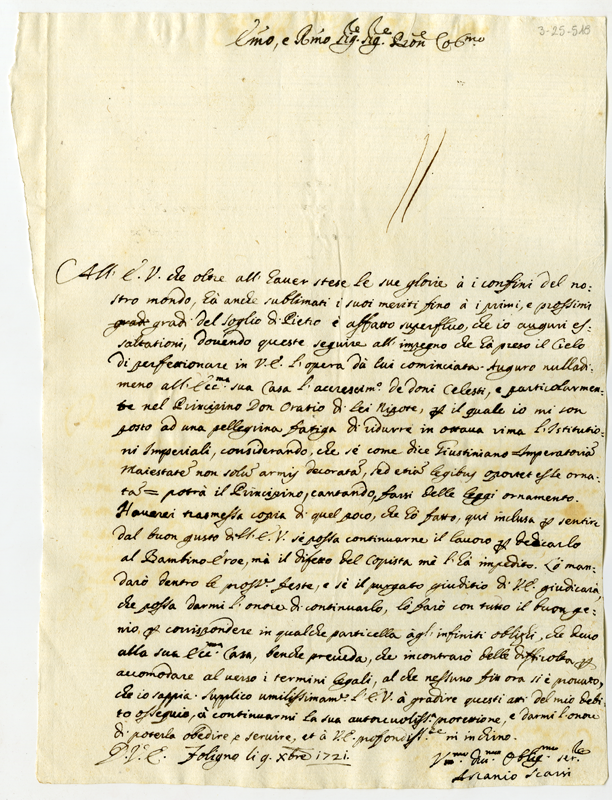 3-25-518
Emo, e Rmo Sig.re Sig.re Pron Colmo
All' E. V. che oltre all' haver stese le sue glorie à i confini del no=
stro mondo, hà anche sublimati i suoi meriti fino à i primi, e prossimi
gradi del Soglio di Pietro è affatto superfluo, che io auguri es=
saltationi, dovendo queste seguire all' impegno che hà preso il Cielo
di perfettionare in V. E. l'opera dà lui cominciata. Auguro nulladi=
meno all' Ecc.ma sua Casa l'accrescim.to de doni Celesti, e particolarmen=
te nel Principino Don Oratio di Lei Nipote, per il quale io mi son
posto ad una pellegrina fatiga di ridurre in ottava rima l'Istitutio=
ni Imperiali, considerando, che sé come dice Giustiniano = Imperatoria
Maiestate non solu armis decorata, sed etia legibus oportet esse orna=
ta = potrà il Principino, cantando, farsi delle leggi ornamento.
Haverei trasmessa copia di quel poco, che hò fatto, qui inclusa per sentire
dal buon gusto di V. E. sé possa continuarne il lavoro per dedicarlo
al Bambino Eroe, mà il difetto del Copista me l'hà impedito. Lò man=
darò dentro le pross.e feste, e sé il purgato giuditio di V. E. giudicarà,
che possa darmi l'onore di continuarlo, lo farò con tutto il buon ge=
nio per corrispondere in qualche particella agl' infiniti oblighi, che devo
alla sua Ecc.ma Casa, benche preveda, che incontrarò delle difficoltà per
accomodare al verso i termini legali, al che nessuno fin ora si è provato,
che io sappia. Supplico umilissimam.te l'E. V. à gradire questi atti del mio debi=
to ossequio, à continuarmi la sua autorevoliss.a protettione, e darmi l'onore
di poterla obedire e servire, et à V. E. profondiss.te m'inchino.
D. V. E. Foligno li 9. Xbre 1721.
Um.mo Div.mo Oblig.mo Ser.re
Ascanio Scarsi